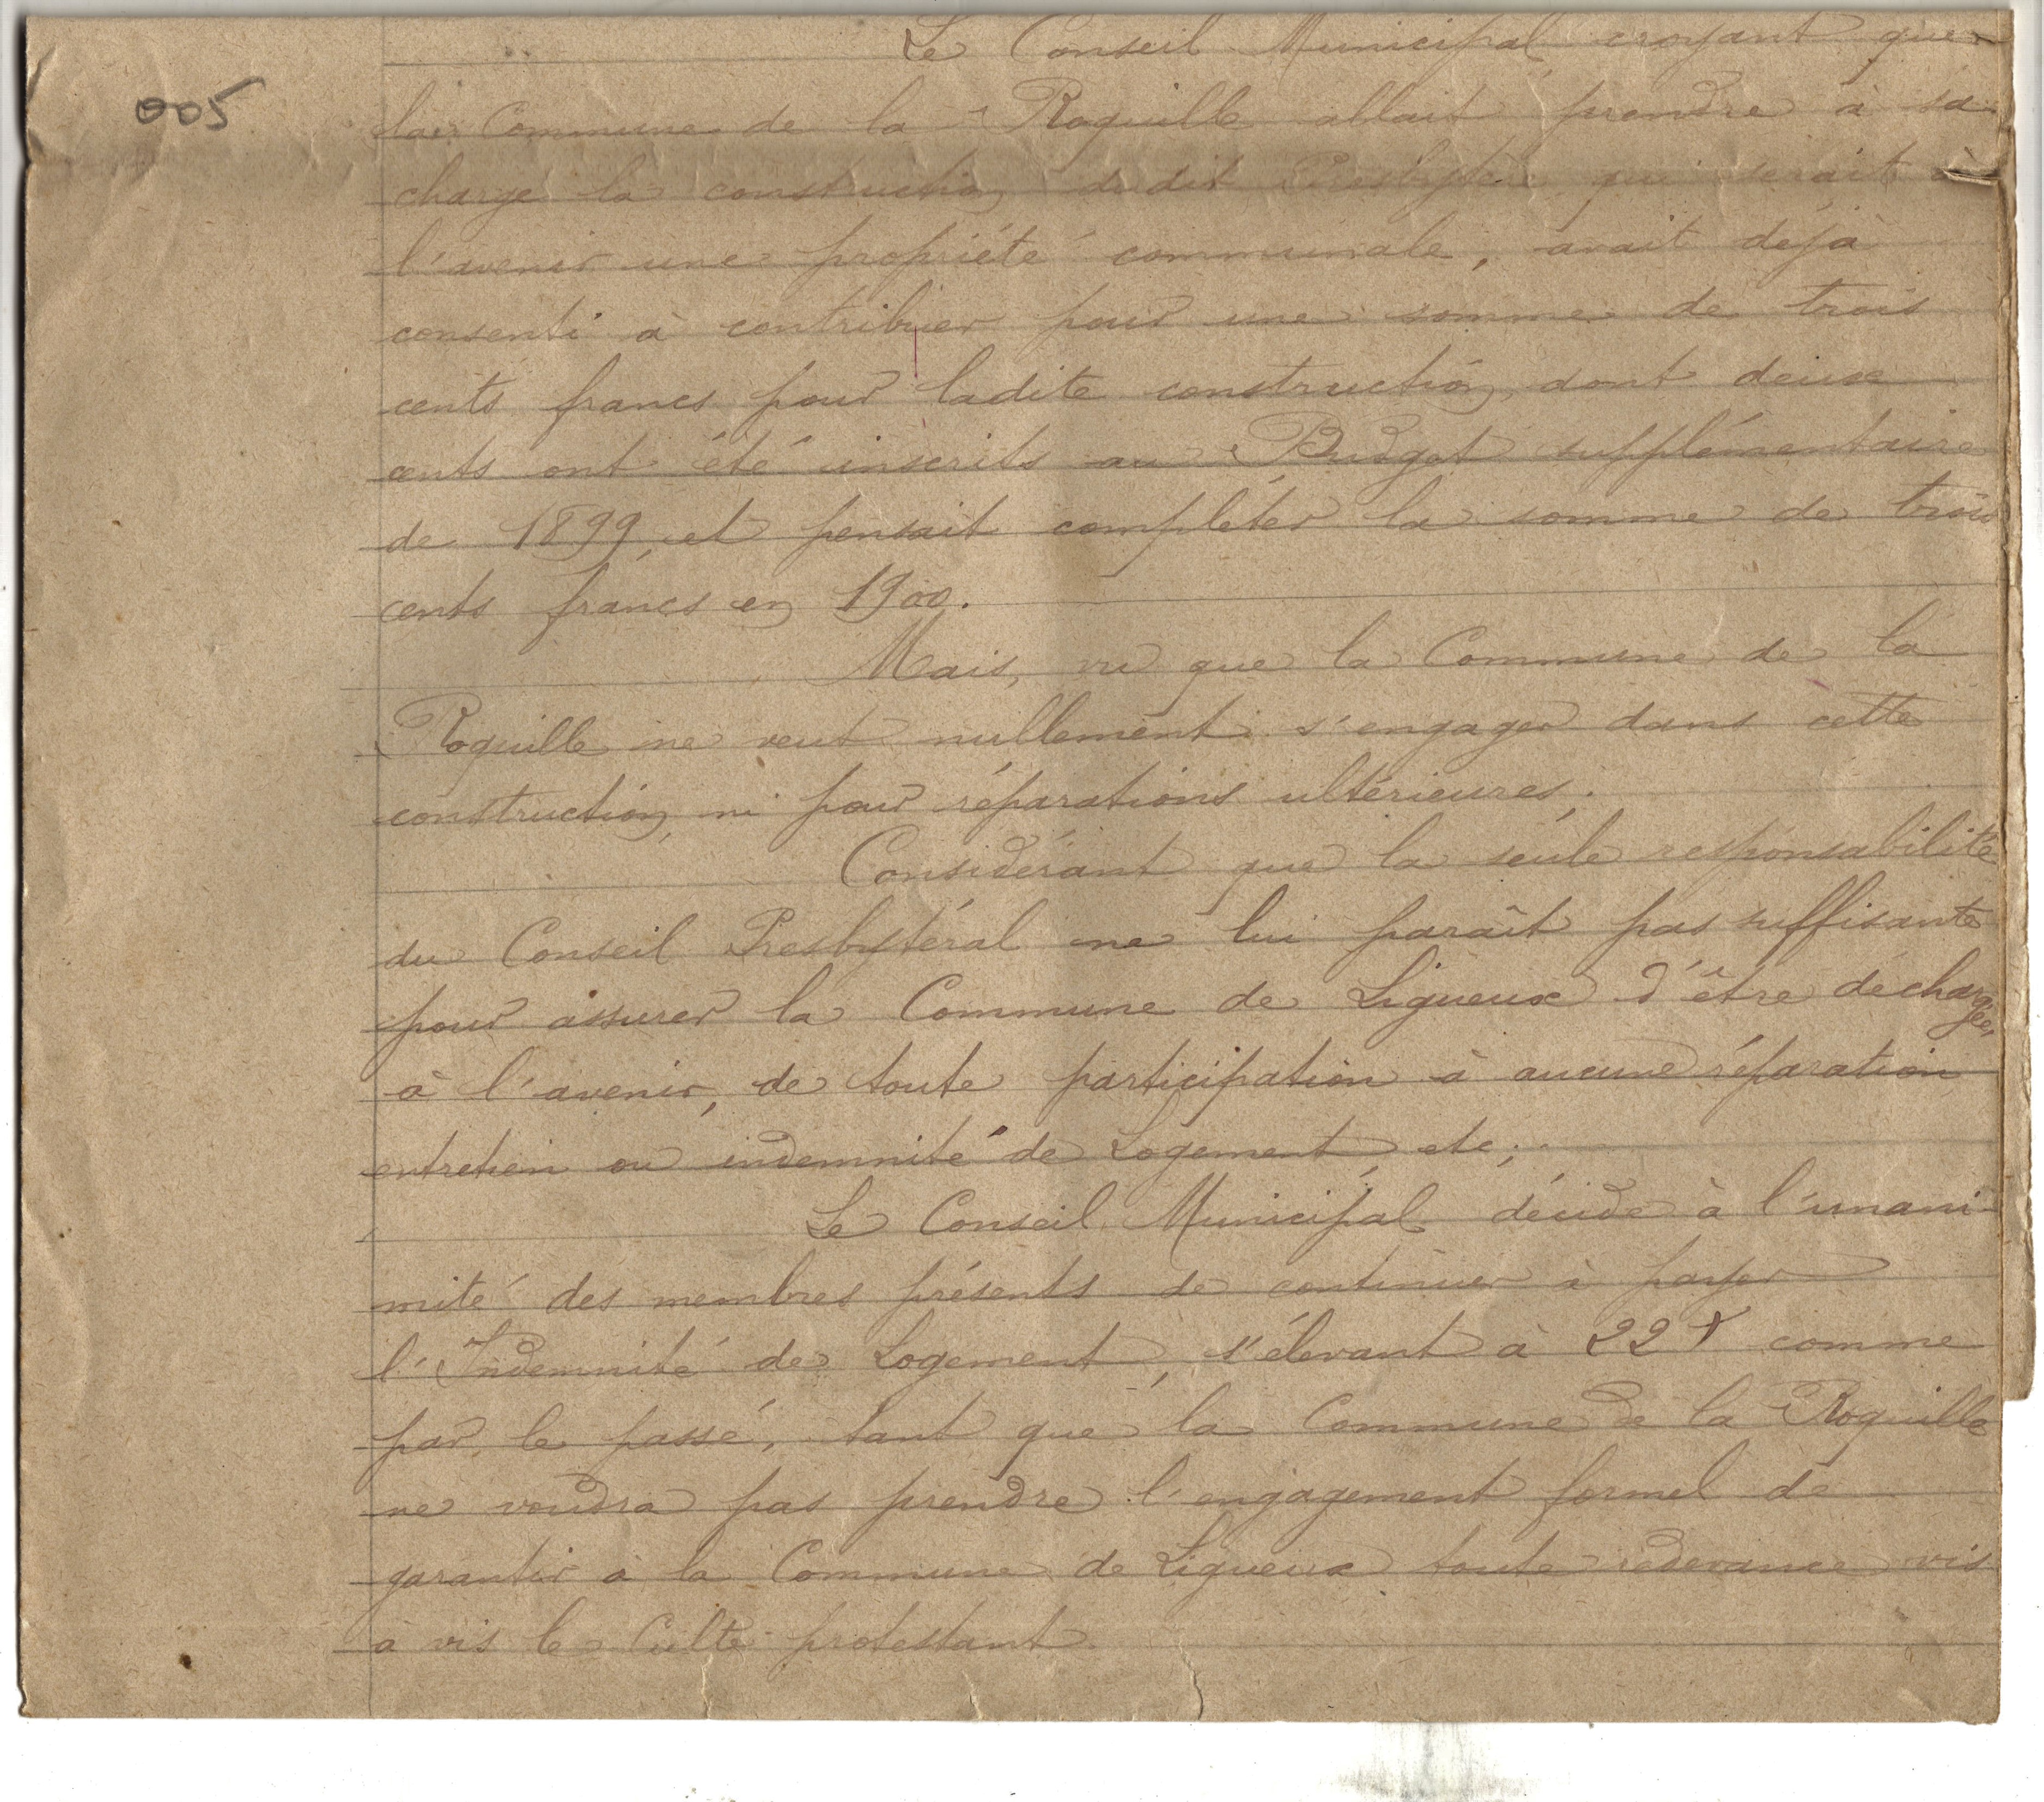 005
Le Conseil Municipal croyant que
la Commune de la Roquille allait prendre à sa
charge la construction dudit Presbytère qui serait à
l'avenir une propriété communale, avait déjà
consenti à contribuer pour une somme de trois
cents francs pour ladite construction, dont deux
cents ont été inscrits au Budget supplémentaire
de 1899, et pensait compléter la somme de trois
cents francs en 1900.
Mais, vu que la Commune de la
Roquille ne veut nullement s'engager dans cette
construction, ni pour réparations ultérieures;
Considérant que la seule responsabilité
du Conseil Presbytéral ne lui paraît pas suffisante
pour assurer la Commune de Ligueux d'être déchargée,
à l'avenir, de toute participation à aucune réparation
entretien ou indemnité de Logement, etc;
Le Conseil Municipal décide à l'unani-
mité des membres présents de continuer à payer
l'Indemnité de Logement, s'élevant à 22f comme
par le passé, tant que la Commune de la Roquille
ne voudra pas prendre l'engagement formel de
garantir à la Commune de Ligueux toute redevance vis
à vis le Culte protestant.